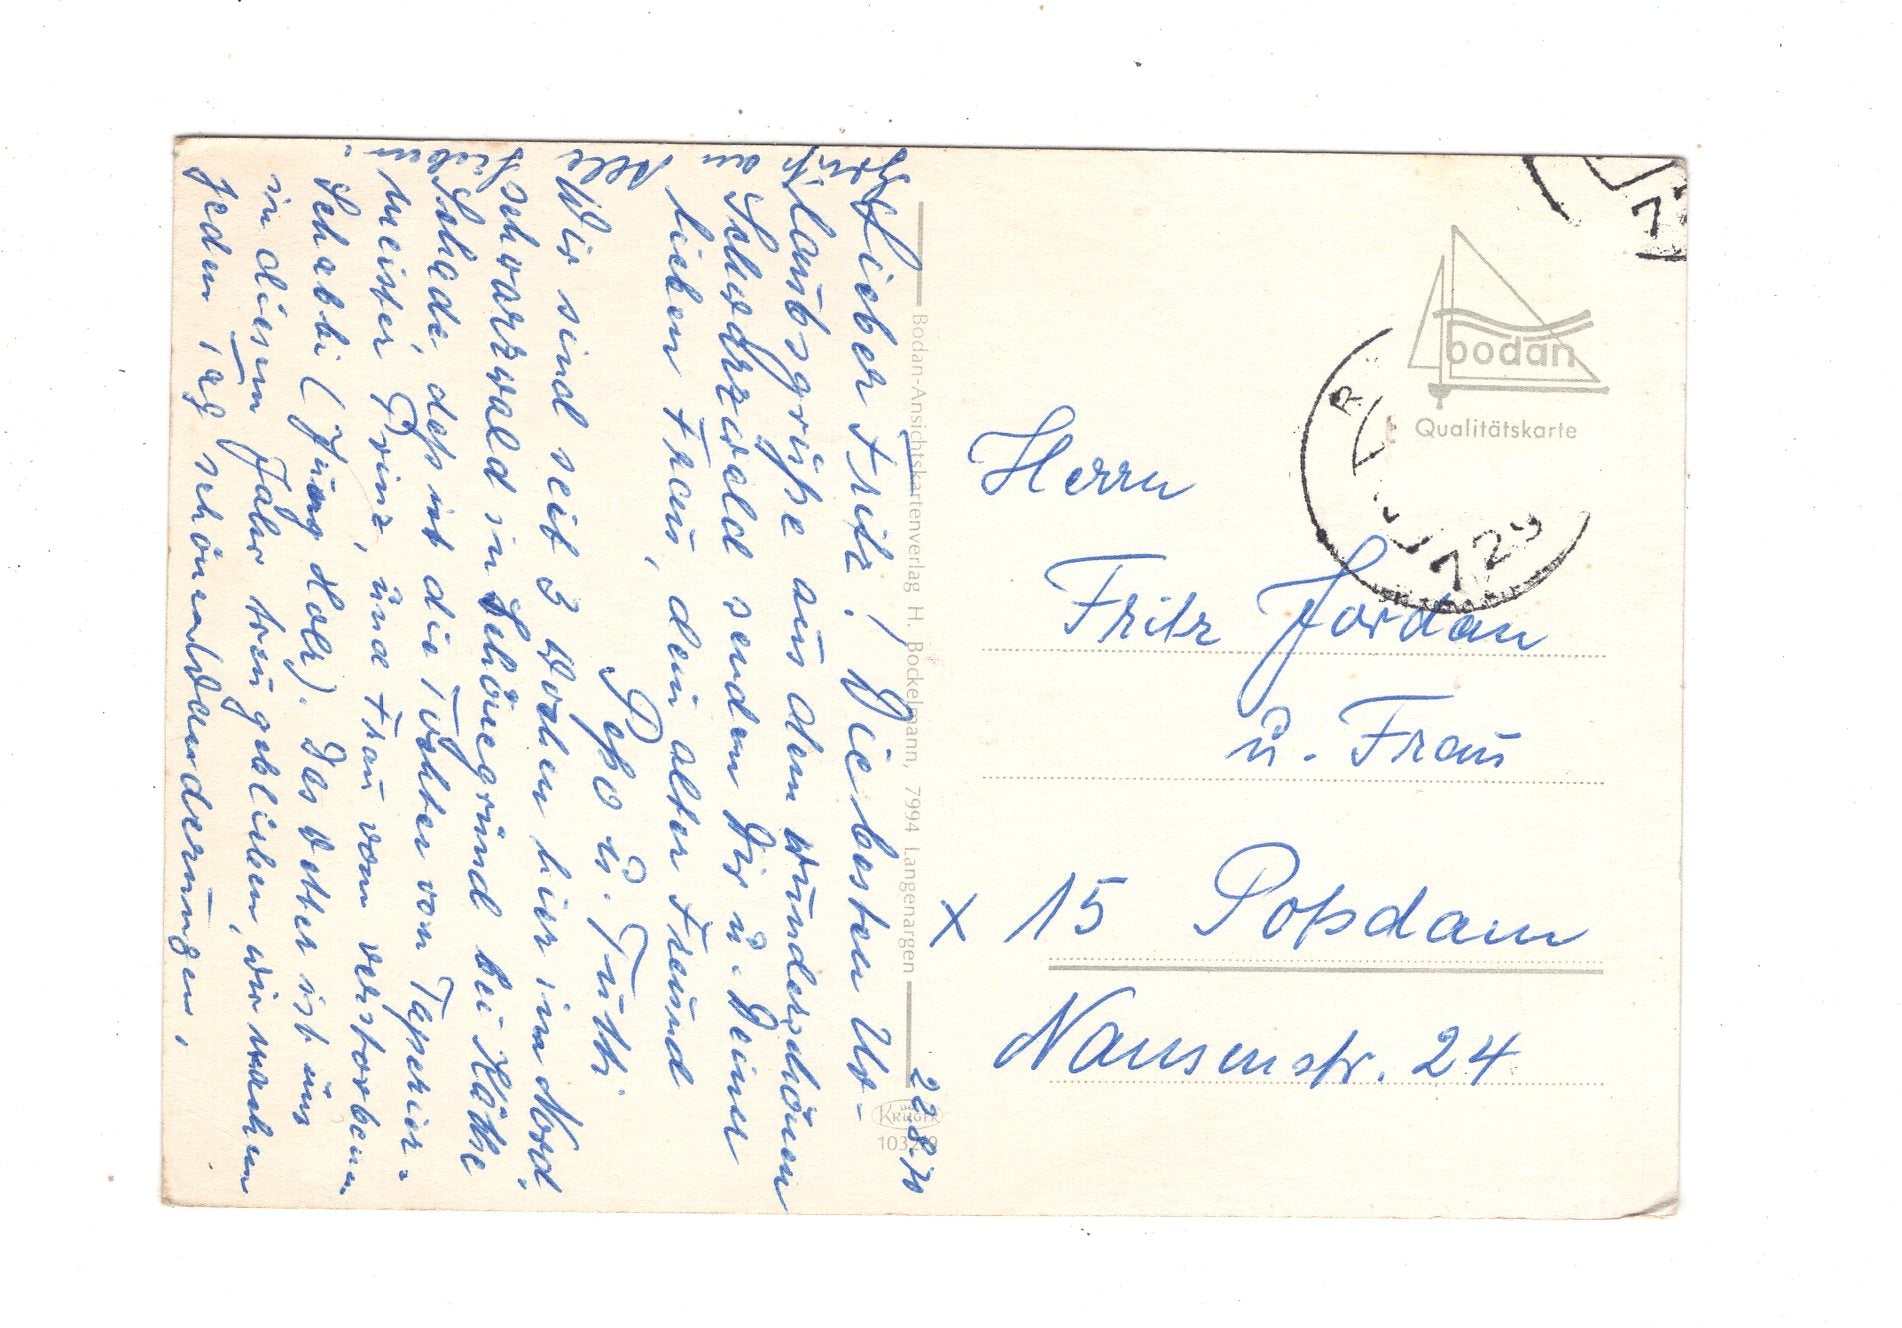 22.8.70
Lieber Fritz! Die besten Ur-
laubsgrüße aus dem wunderschönen
Schwarzwald senden Dir u. Deiner
lieben Frau, dein alter Freund
u. Trutti.
Wir sind seit 3 Wochen hier im Nord
schwarzwald in Schönegründ bei Käthe
Schade, daß ist die Tochter vom Tapezier-
meister, Prinz, und Frau vom verstorbenen
Schabbi (Jung Holz). Das Wetter ist uns
in diesem Jahr treu geblieben, wir machen
jeden Tag schöne Wanderungen,
Grüß
an
Alle
Lieben
Bodan-Ansichtskartenverlag H. Bockelmann, 7994 Langenargen
KRÜGER
bodan
Qualitätskarte
729
Herrn
Fritz Jordan
u. Frau
x 15 Potsdam
Nansenstr. 24